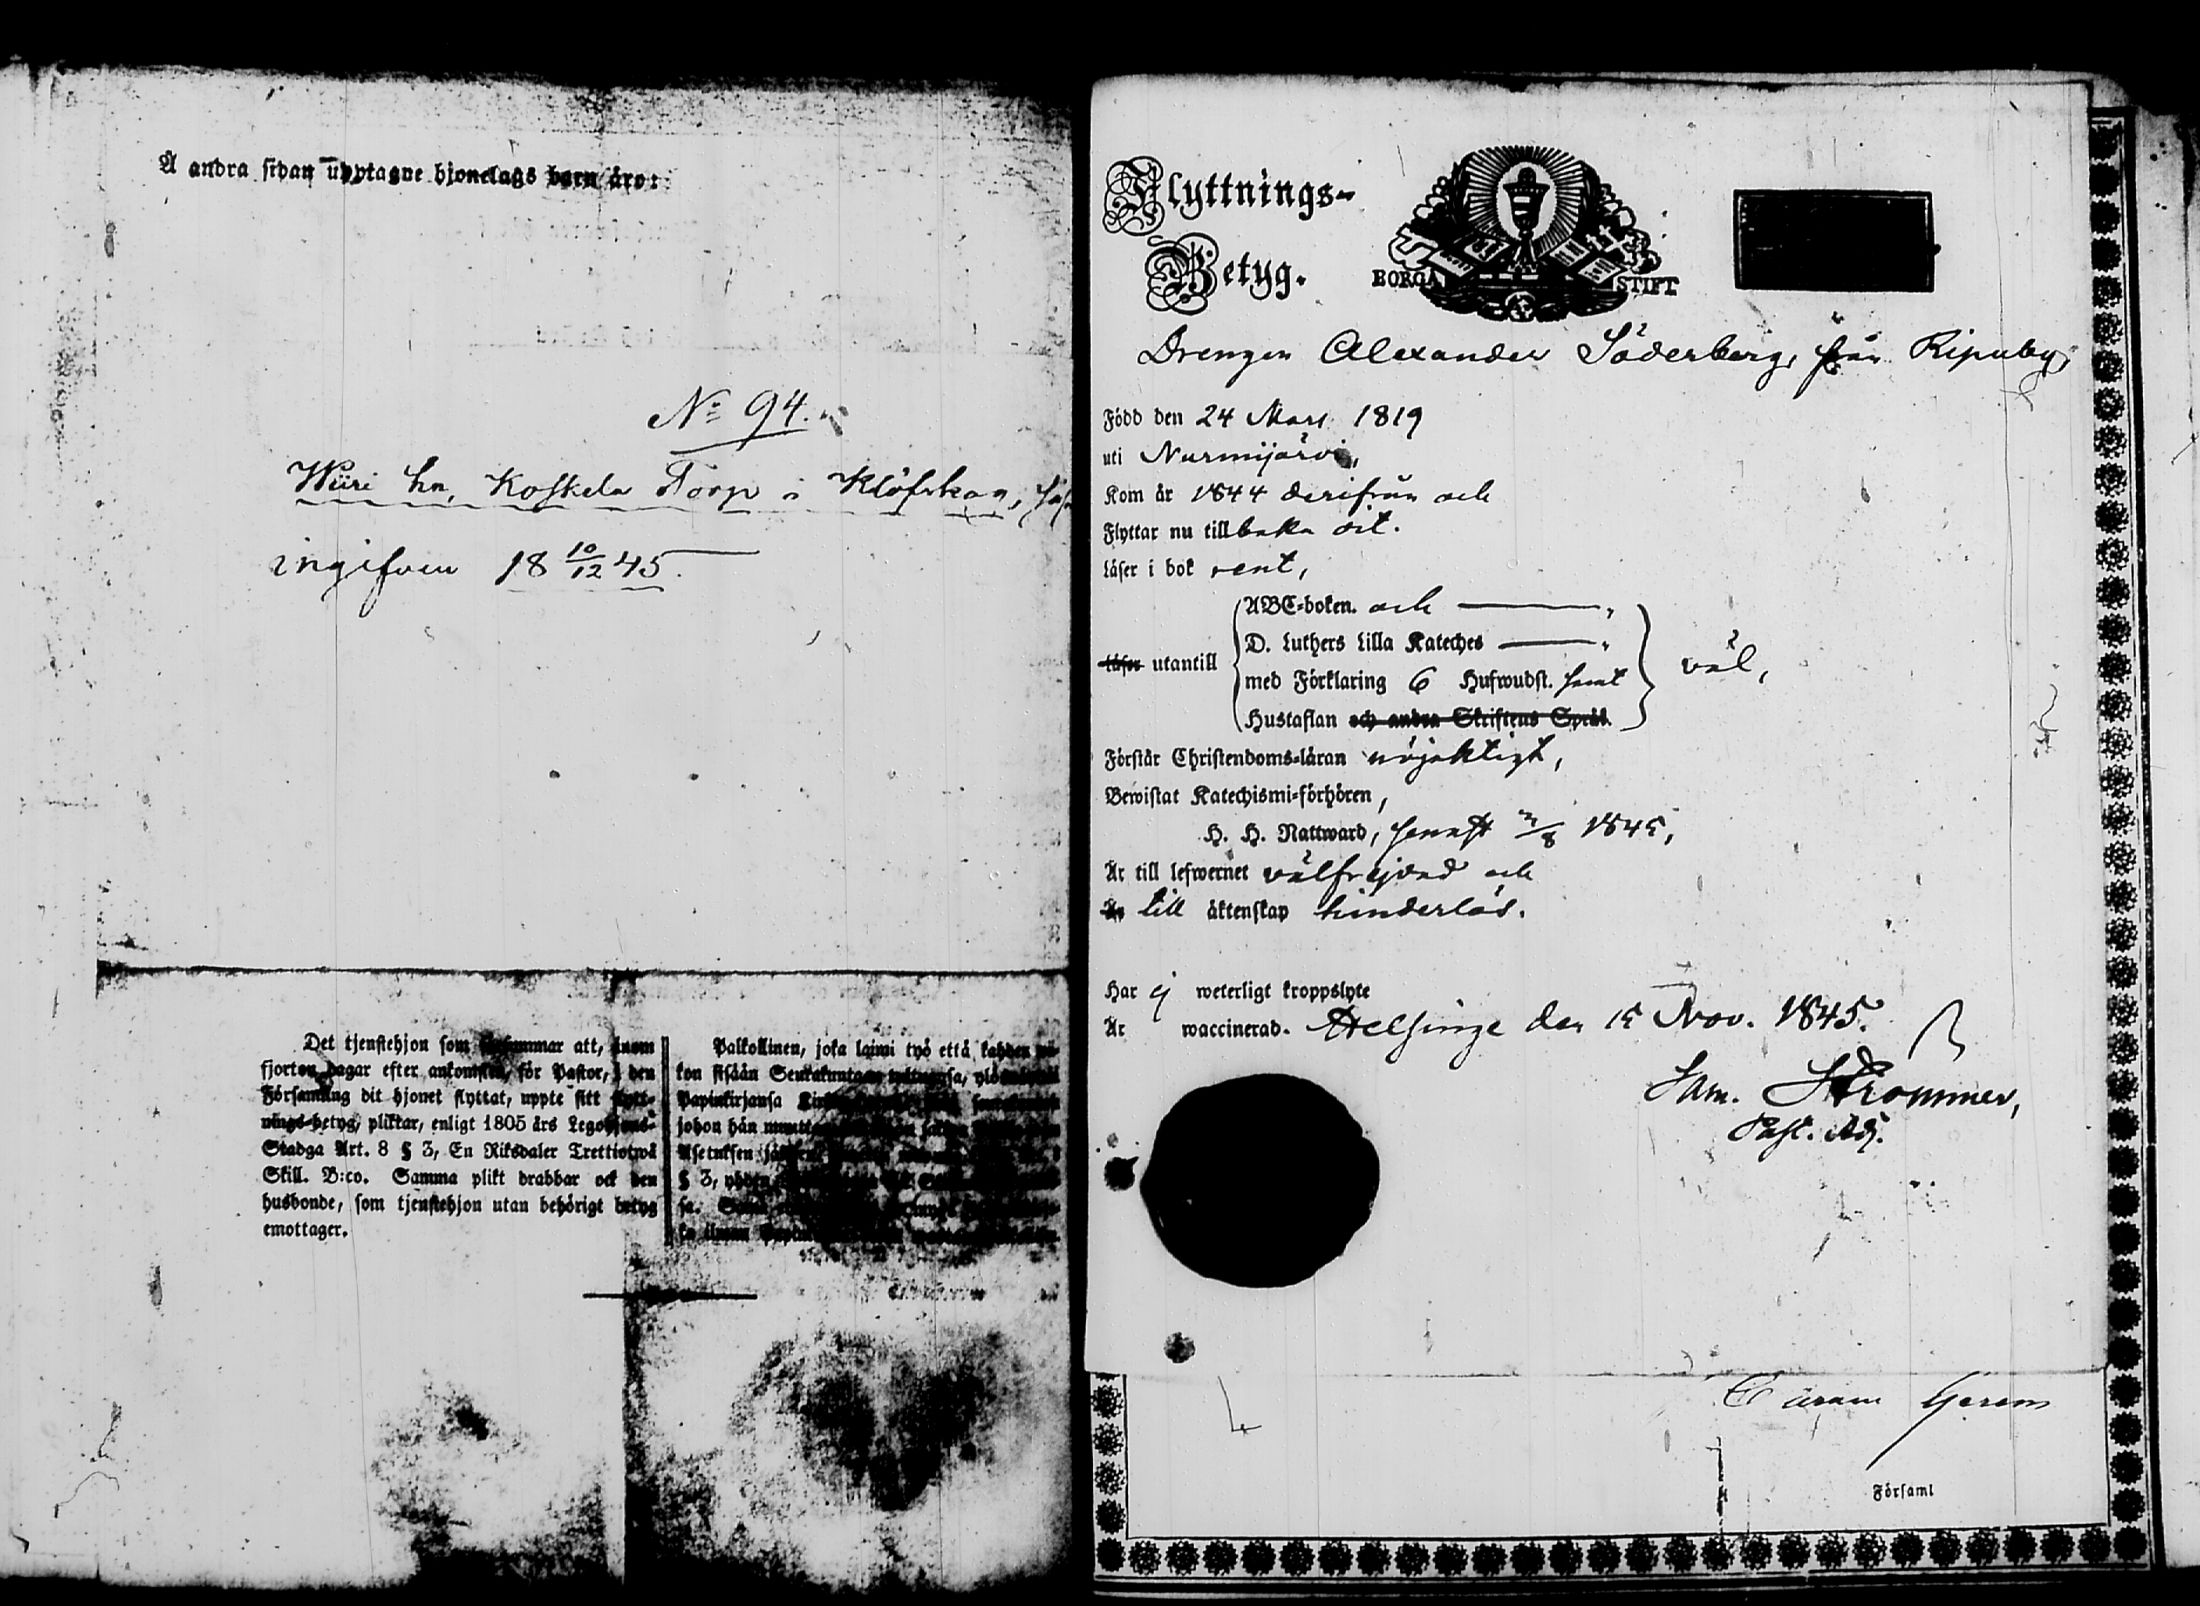 Å andra sidan upptagne hjonelags barn äro:
No 94.
Wiiri hn, Koskela Torp i Klöfskog,
ingifven 18 10/12 45.
Det tjenstehjon som försummar att, inom
fjorton dagar efter ankomsten, för Pastor, i den
Församling dit hjonet flyttat, uppte sitt flytt-
nings-betyg, pliktar, enligt 1805 års Legohjons-
Stadga Art. 8 § 3, En Riksdaler Trettiotwå
Skill. B:co. Samma plikt drabbar ock den
husbonde, som tjenstehjon utan behörigt betyg
emottager.
Palkollinen, joka laimi työ että kahden wii-
kon sisään Seurakuntaan
Papinkirjansa
johon hän
Asetuksen
§ 3,
sa.
ka ilman
Flyttnings-
Betyg.
BORGÅ STIFT
Drengen Alexander Söderberg, från Ripuby,
Född den 24 Mars 1819
uti Nurmijärvi,
Kom år 1844 derifrån och
Flyttar nu tillbaka dit.
Läser i bok rent,
ABC-boken. och
D. Luthers Lilla Kateches
läser utantill
med Förklaring 6 Hufwudst. samt
Hustaflan och andra Skriftens Språk.
väl,
Förstår Christendoms-läran nöjaktigt,
Bewistat Katechismi-förhören,
H. H. Nattward, senast 3/8 1845,
Är till lefwernet välfrejdad och
Är till äktenskap hinderlös.
Har ej weterligt kroppslyte
Är waccinerad. Helsinge den 15 Nov. 1845.
Sam. Strömmer,
Past. Adj.
Församl